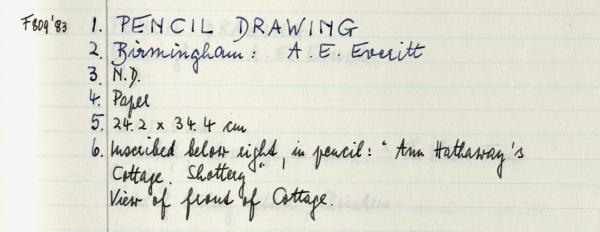 F809'83 1. PENCIL DRAWING
2. Birmingham: A. E. Everitt
3. N.D.
4. Paper
5. 24.2 x 34.4 cm
6. Inscribed below right, in pencil: "Ann Hathaway's
Cottage. Shottery"
View of front of Cottage.